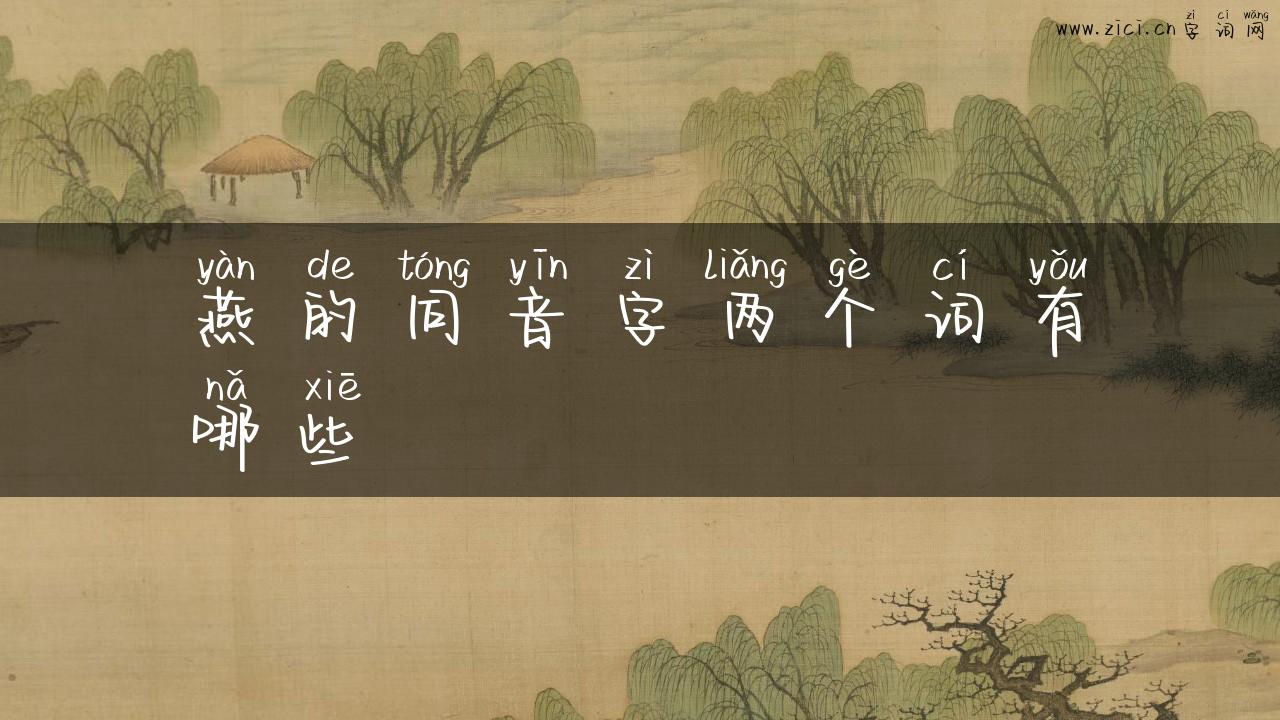 zì cí wǎng
www.zici.cn 字词网
yàn de tóng yīn zì liǎng gè cí yǒu
燕的同音字两个词有
nǎ xiē
哪些